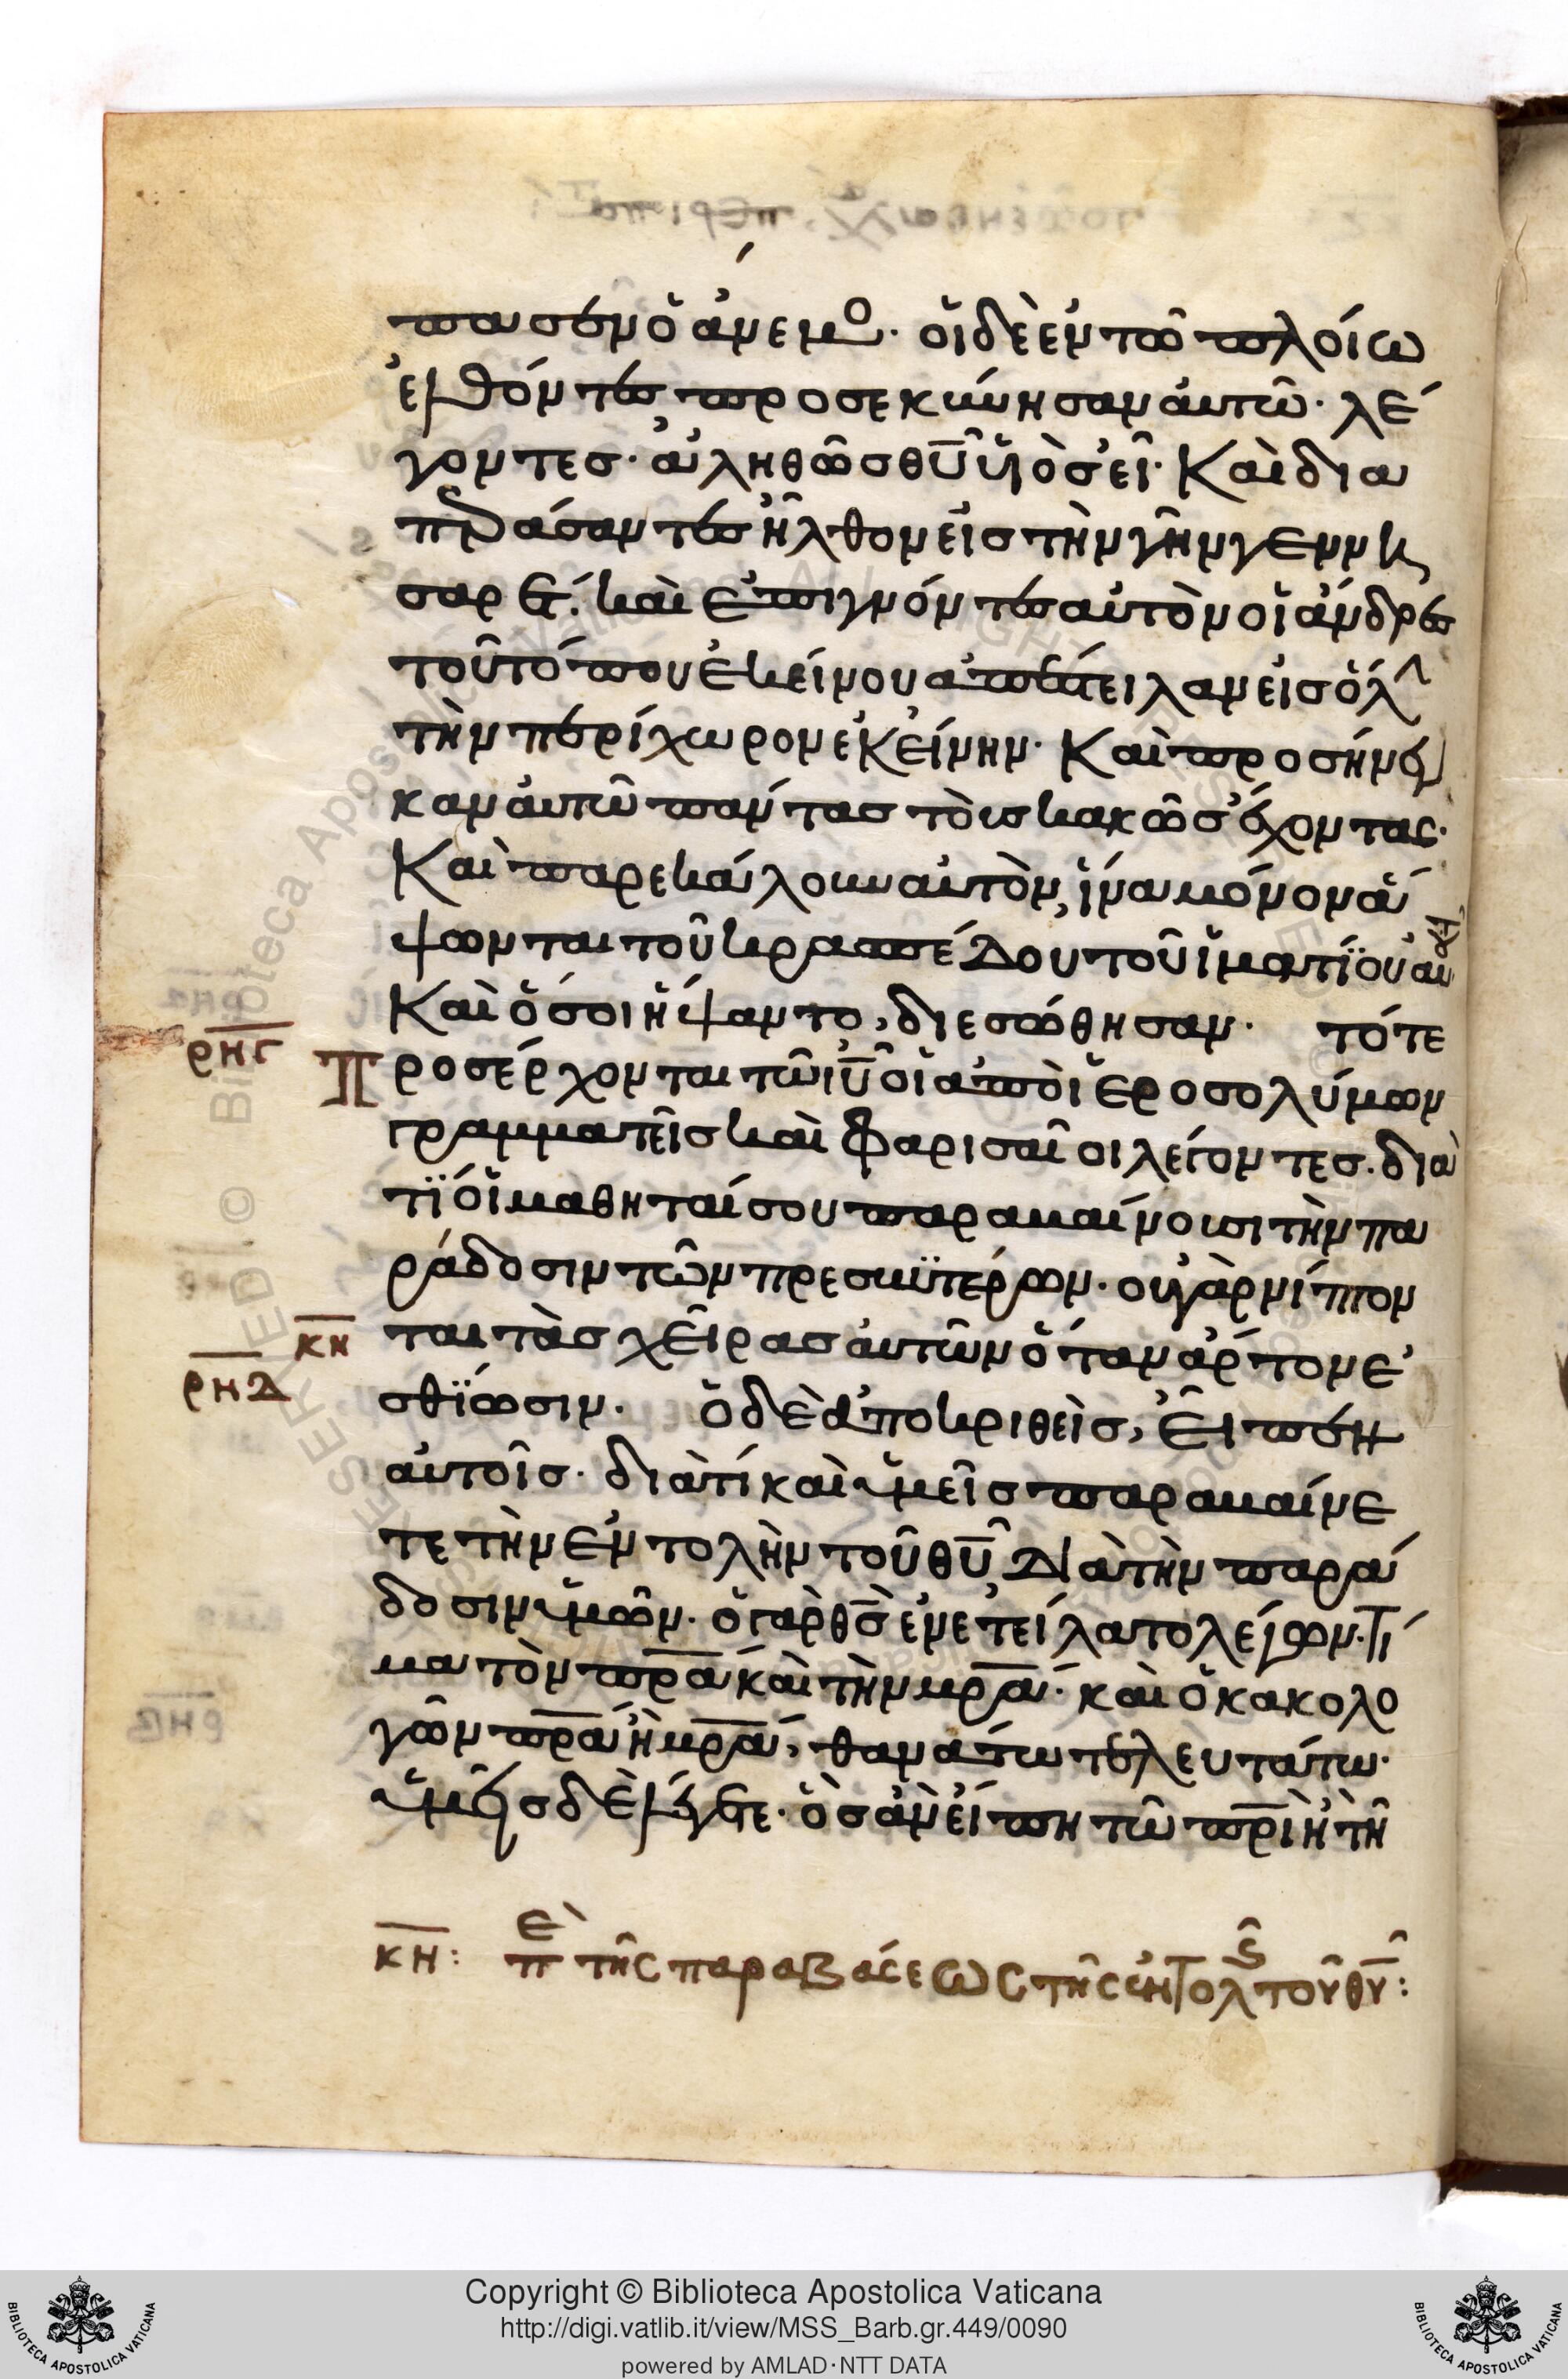 πασεν ὁ ἄνεμο. οἱ δὲ ἐν τῶ πλοίω
ἐλθόντες προσεκύνησαν αὐτῶ. λέ
γοντες. ἀληθῶς θῦ υἱὸς εἶ. Καὶ δια
περάσαντες ἦλθον εἰς τὴν γῆν γεννη
σαρέτ. καὶ ἐπιγνόντες αὐτὸν οἱ ἄνδρες
τοῦ τόπου ἐκείνου ἀπέστειλαν εἰς ὅλ
τὴν περίχωρον ἐκείνην. Καὶ προσήνεγ
καν αὐτῶ πάντας τοὺς κακῶς ἔχοντας.
Καὶ παρεκάλουν αὐτὸν, ἵνα μόνον ἅ
ψωνται τοῦ κρασπέδου τοῦ ἱματίου αὐ
Καὶ ὅσοι ἥψαντο, διεσώθησαν. τότε
ρνγ Προσέρχονται τῶ ιῦ οἱ ἀπὸ ἱεροσολύμων
γραμματεῖς καὶ φαρισαῖοι λέγοντες. διὰ
τί οἱ μαθηταί σου παραβαίνουσι τὴν πα
ράδοσιν τῶν πρεσβυτέρων. οὐ γὰρ νίπτον
κη ται τὰς χεῖρας αὐτῶν ὅταν ἄρτον ἐ
ρνδ σθίωσιν. ὁ δὲ ἀποκριθεὶς, εἶπεν
αὐτοῖς. διὰ τί καὶ ὑμεῖς παραβαίνε
τε τὴν ἐντολὴν τοῦ θῦ διὰ τὴν παρά
δοσιν ὑμῶν. ὁ γὰρ θς ἐνετείλατο λέγων. Τί
μα τὸν πρα καὶ τὴν μρα. καὶ ὁ κακολο
γῶν πρα ἢ μρα, θανάτω τελευτάτω.
ὑμεῖς δὲ λέγετε. ὃς ἂν εἴπη τῶ πρι ἢ τῆ
κη: πε τῆς παραβάσεως τῆς ἐντολς τοῦ θῦ:
Copyright © Biblioteca Apostolica Vaticana
http://digi.vatlib.it/view/MSS_Barb.gr.449/0090
powered by AMLAD·NTT DATA
BIBLIOTECA APOSTOLICA VATICANA
BIBLIOTECA APOSTOLICA VATICANA